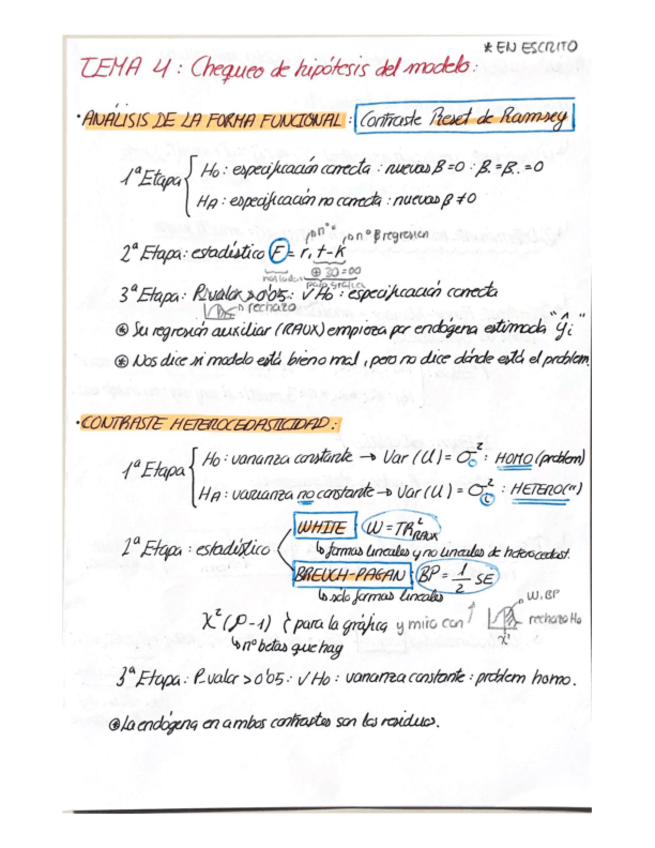 * EN ESCRITO
TEMA 4: Chequeo de hipótesis del modelo:
· ANÁLISIS DE LA FORMA FUNCIONAL: Contraste Reset de Ramsey
1ª Etapa { H0: especificación correcta: nuevas B=0: B.=B.=0
HA: especificación no correcta: nuevas β ≠ 0
2ª Etapa: estadístico F = r, t-k
nº β regresión
⊕ 30 = ∞
para gráfica
3ª Etapa: P_valor > 0'05: √ H0: especificación correcta
rechazo
⊛ Su regresión auxiliar (RAUX) empieza por endógena estimada "ŷi"
⊛ Nos dice si modelo está bien o mal, pero no dice dónde está el problem.
· CONTRASTE HETEROCEDASTICIDAD:
1ª Etapa { H0: varianza constante → Var (U) = σ²: HOMO (problem)
HA: varianza no constante → Var (U) = σ²i: HETERO (")
2ª Etapa: estadístico
WHITE: W = TR²RAUX
↳ formas lineales y no lineales de heterocedast.
BREUCH-PAGAN: BP = 1/2 SE
↳ solo formas lineales
χ² (P-1) } para la gráfica y miro con ↑
W, BP
rechazo H0
χ²
↳ nº betas que hay
3ª Etapa: P_valor > 0'05: √ H0: varianza constante: problem homo.
⊛ La endógena en ambos contrastes son los residuos.